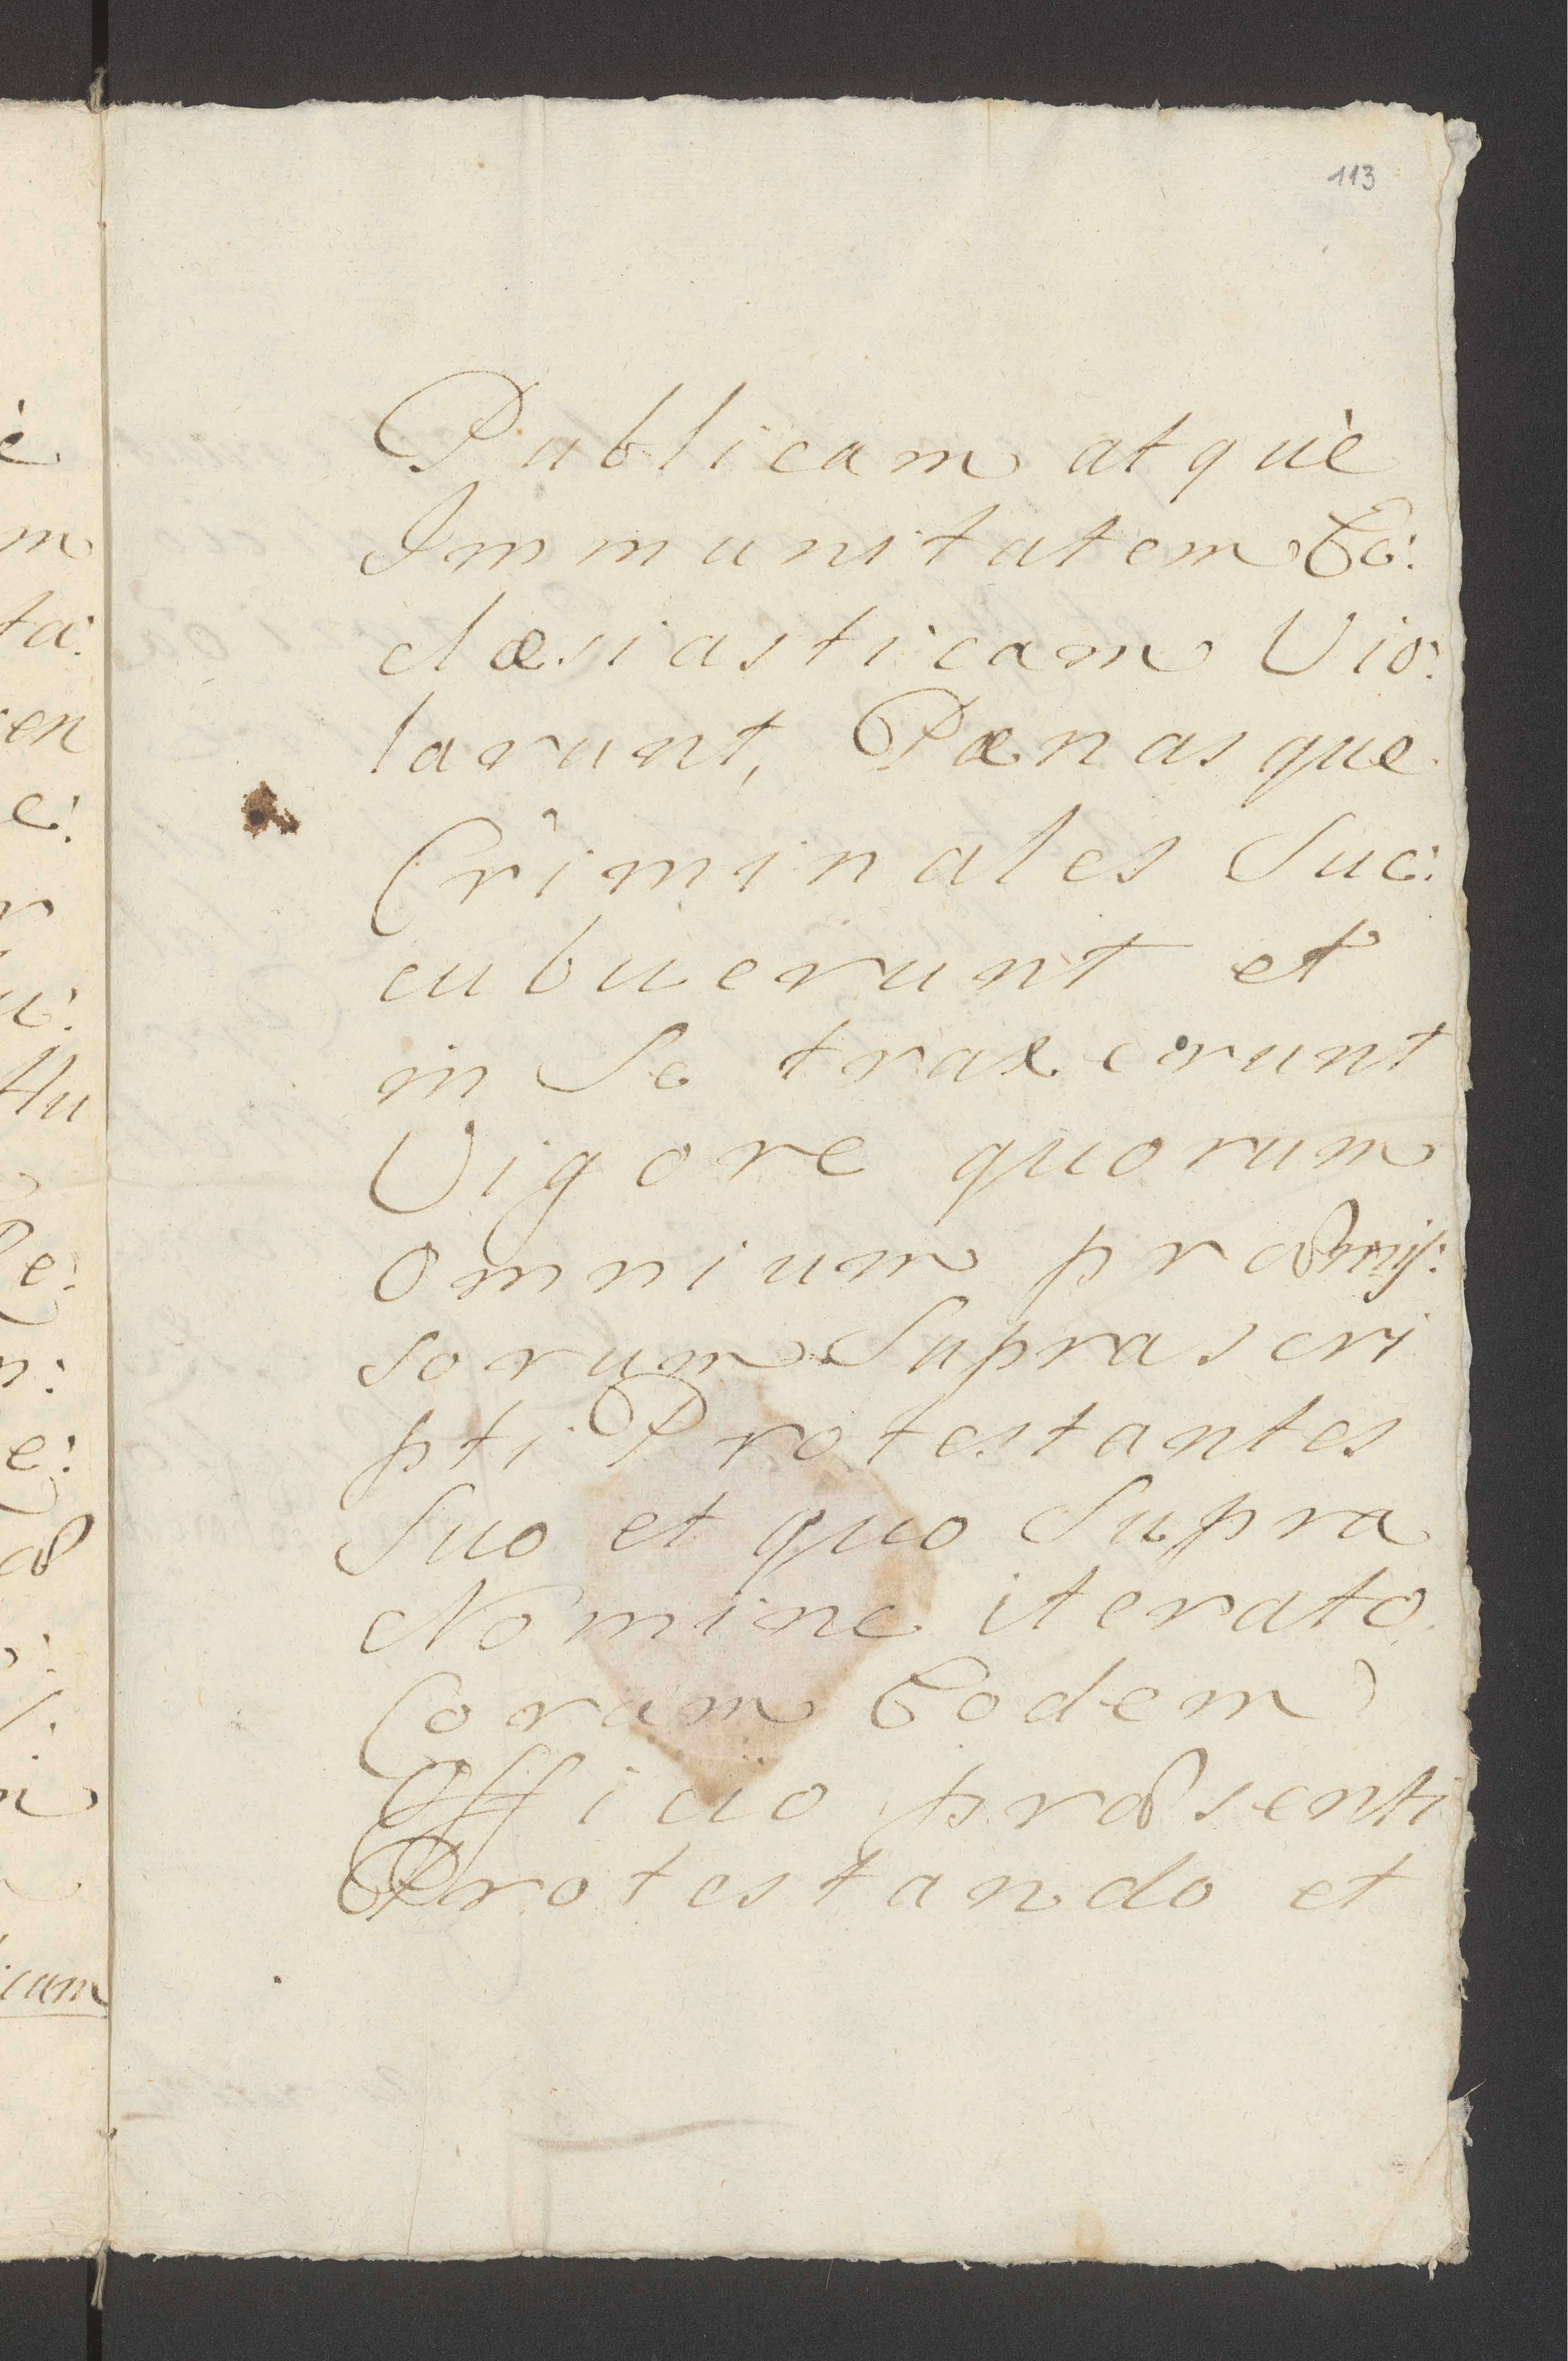 113
Publicam atquè
Immunitatem Ec:
clæsiasticam Vio:
larunt, Pænasque
Criminales Suc:
cubuerunt et
in Se traxerunt
Vigore quorum
omnium præmis:
sorum Suprascri
pti Protestantes
Suo et quo Supra
Nomine iterato
Coram Eodem
Officio præsenti
Protestando et